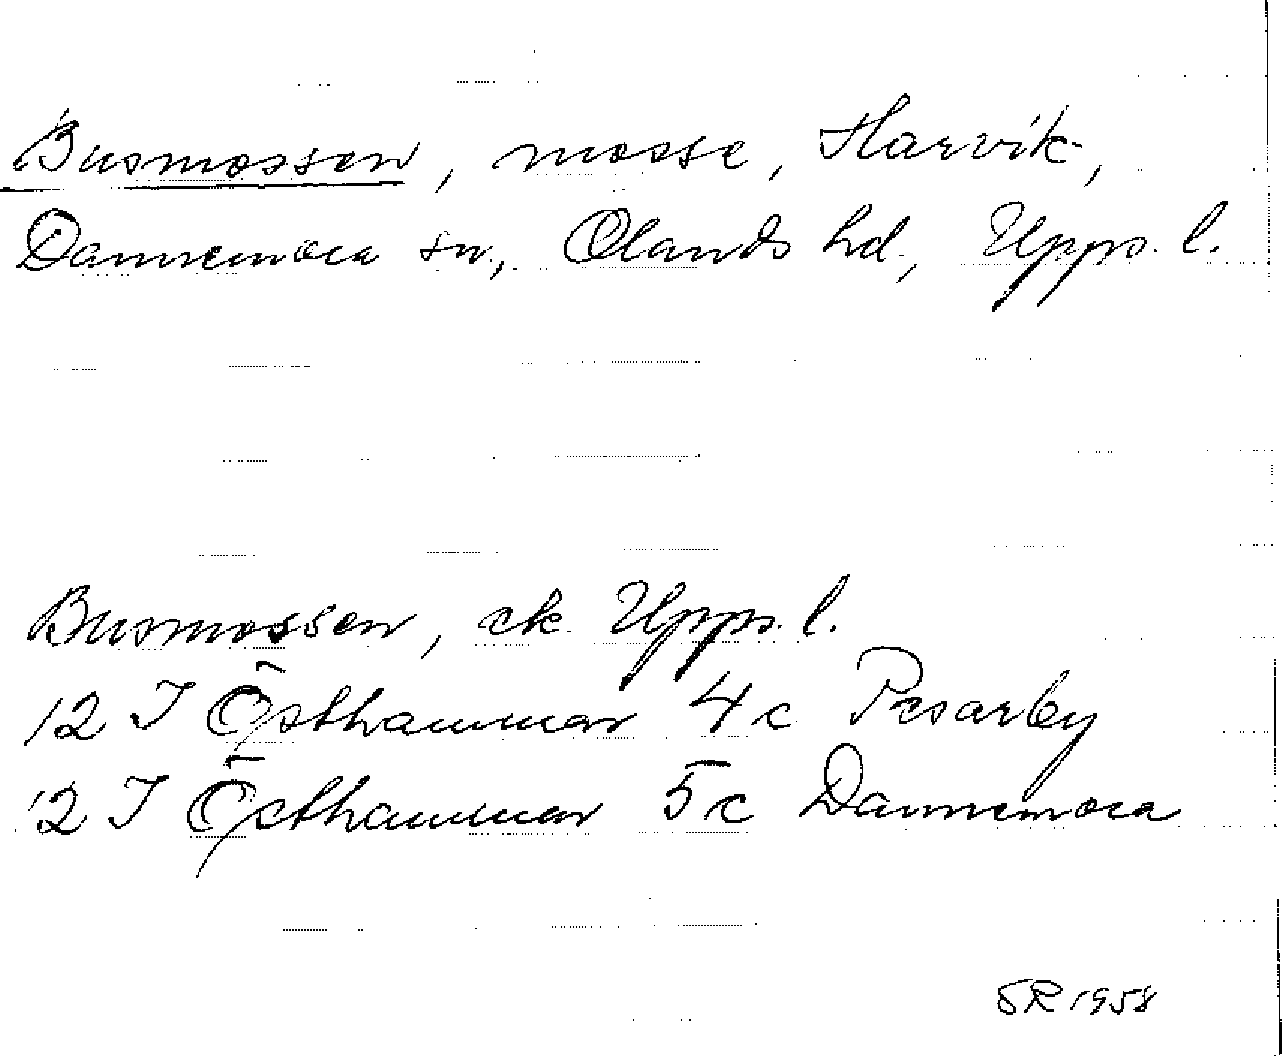 Busmossen, mosse, Harvik,
Dannemora sn, Olands hd, Upps. l.
Busmossen, ek Upps. l.
12 I Östhammar 4 c Pesarby
12 I Östhammar 5 c Dannemora
SR 1958